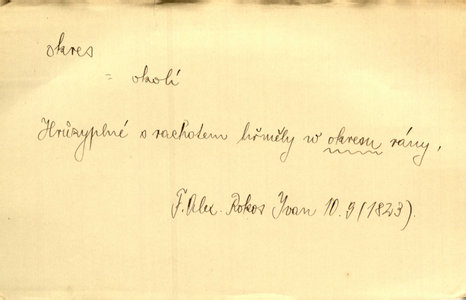 okres
= okolí
Hrůzyplné s rachotem hřměly w okresu rány,
F. Alex. Rokos Ivan 10. 9 (1823).